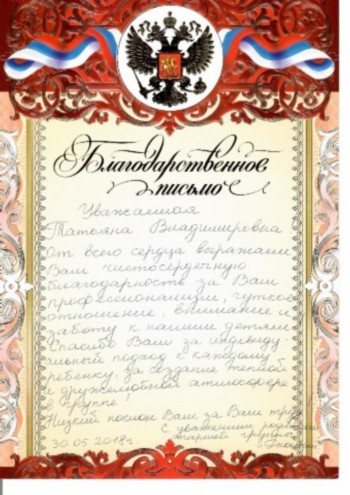 Благодарственное
письмо
Уважаемая
Татьяна Владимировна
От всего сердца выражаем
Вам чистосердечную
благодарность за Ваш
профессионализм, чуткое
отношение, внимание и
заботу к нашим детям
Спасибо Вам за индивиду
альный подход к каждому
ребенку, за создание теплой
и дружелюбной атмосферы
в группе!
Низкий поклон Вам за Ваш труд
С уважением родители
30.05.2018г. старшей группы